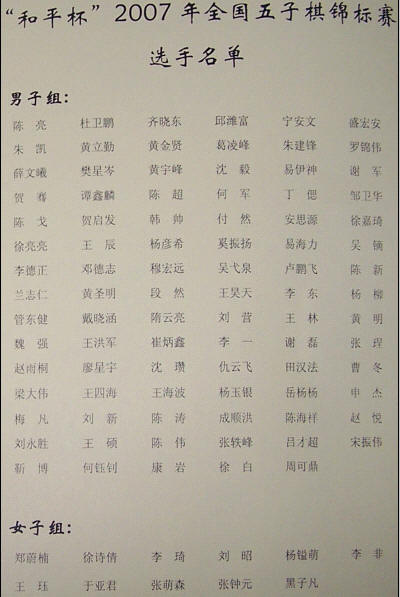 “和平杯”2007年全国五子棋锦标赛
选手名单
男子组：
陈亮 杜卫鹏 齐晓东 邱潍富 宁安文 盛宏安
朱凯 黄立勤 黄金贤 葛凌峰 朱建锋 罗锦伟
薛文曦 樊星岑 黄宇峰 沈毅 易伊神 谢军
贺骞 谭鑫麟 陈超 何军 丁偲 邹卫华
陈戈 贺启发 韩帅 付然 安思源 徐嘉琦
徐亮亮 王辰 杨彦希 奚振扬 易海力 吴镝
李德正 邓德志 穆宏远 吴弋泉 卢鹏飞 陈新
兰志仁 黄圣明 段然 王昊天 李东 杨柳
管东健 戴晓涵 隋云亮 刘营 王林 黄明
魏强 王洪军 崔炳鑫 李一 谢磊 张珵
赵雨桐 廖星宇 沈瓒 仇云飞 田汉法 曹冬
梁大伟 王四海 王海波 杨玉银 岳杨杨 申杰
梅凡 刘新 陈涛 成顺洪 陈海祥 赵悦
刘永胜 王硕 陈伟 张轶峰 吕才超 宋振伟
靳博 何钰钊 康岩 徐白 周可鼎
女子组：
郑蔚楠 徐诗倩 李琦 刘昭 杨镒萌 李非
王珏 于亚君 张萌森 张钟元 黑子凡